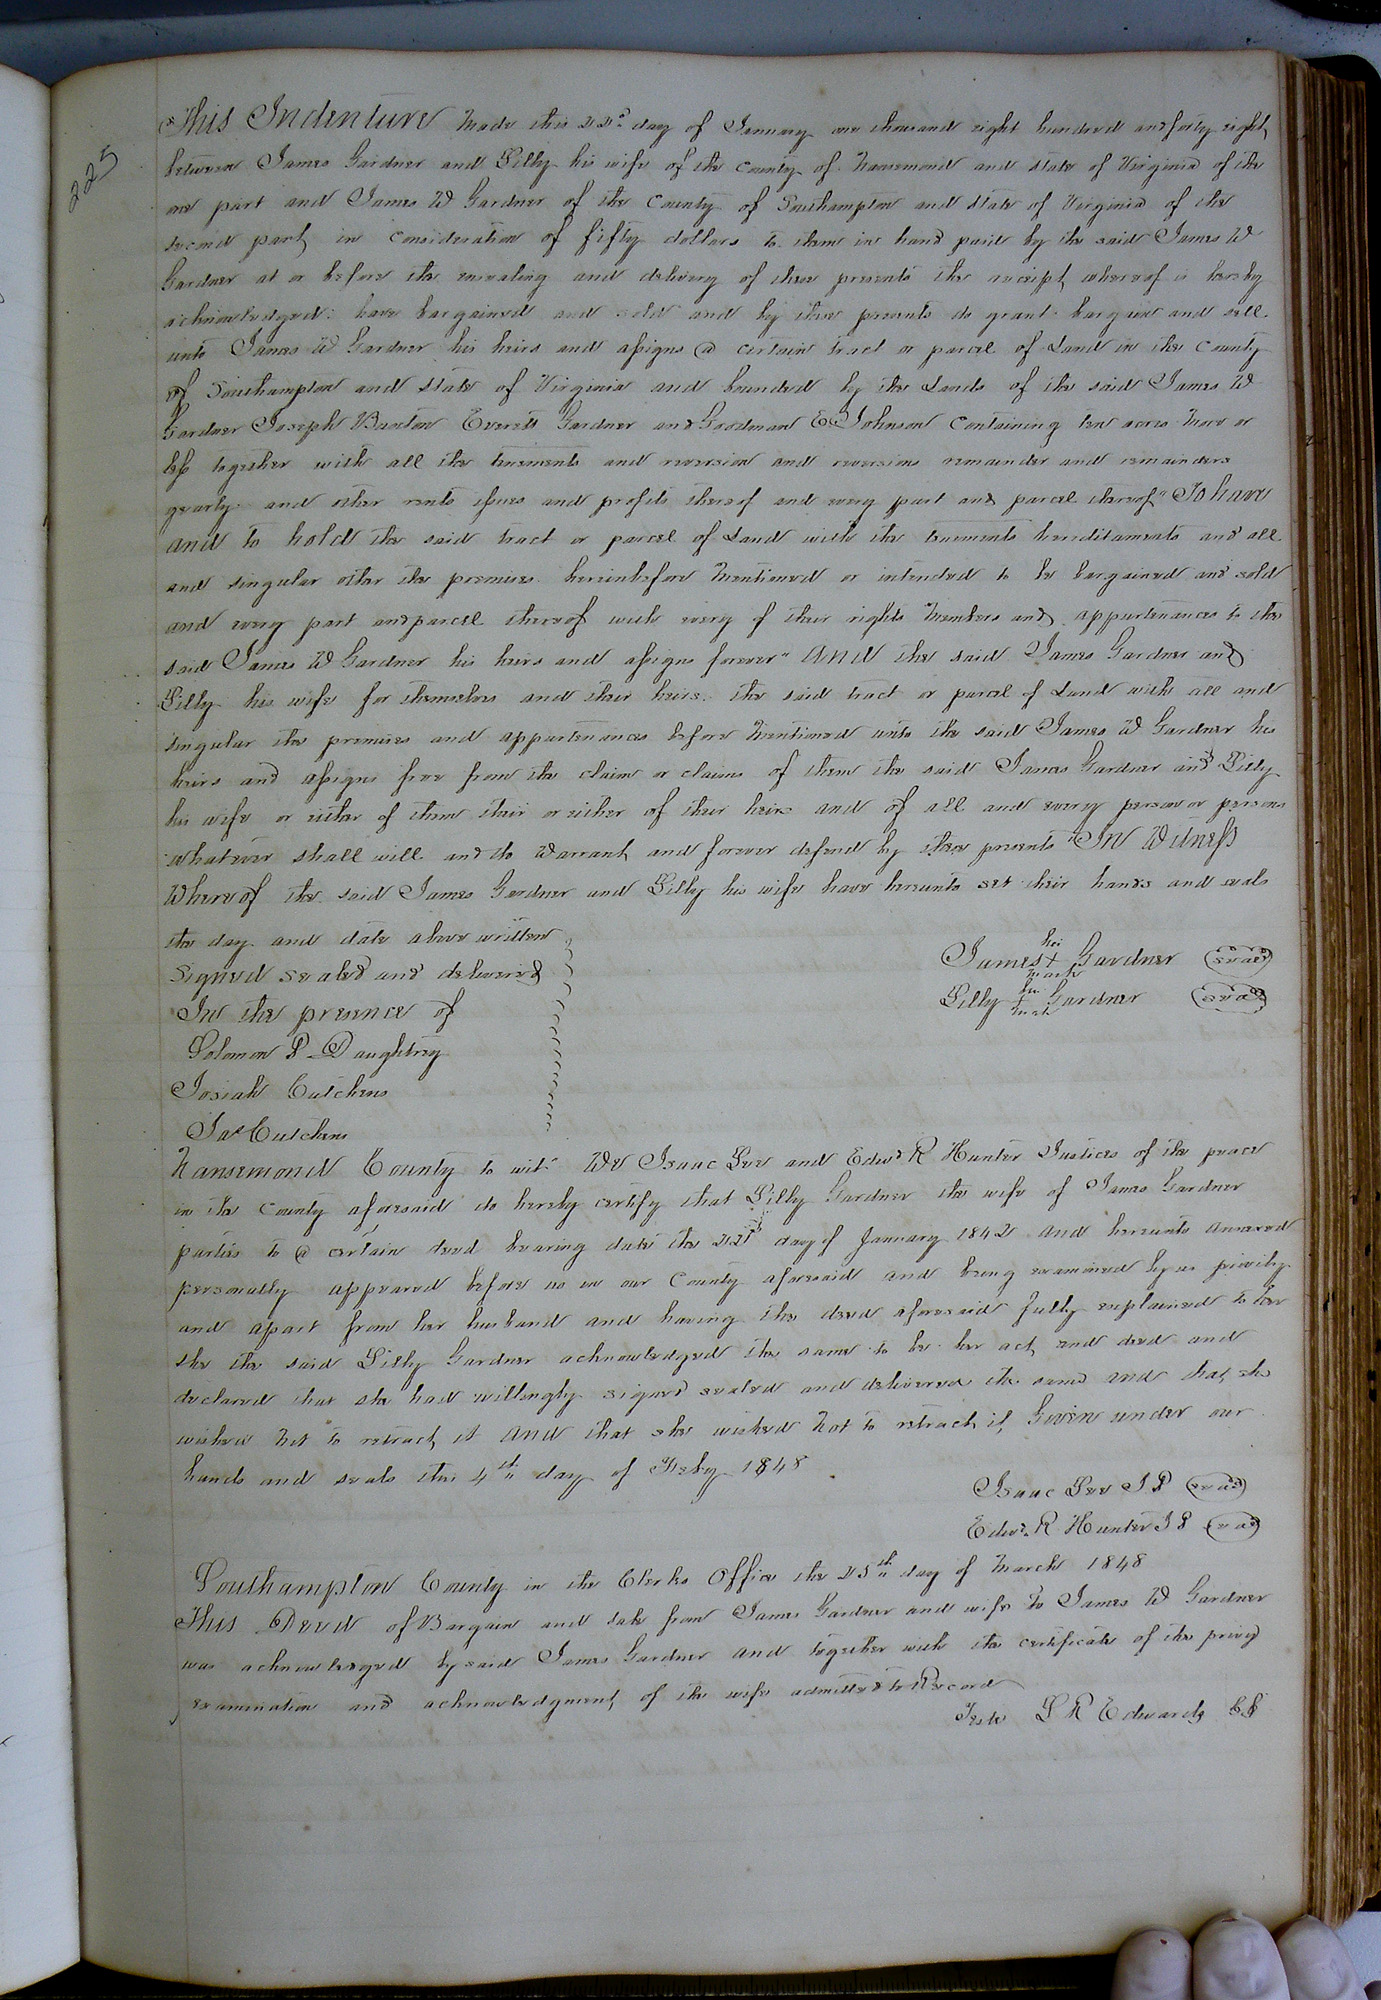 225
This Indenture Made this 22d day of January one thousand eight hundred and forty eight
between James Gardner and Silly his wife of the County of Nansemond and State of Virginia of the
one part and James W Gardner of the County of Southampton and State of Virginia of the
second part, in consideration of fifty dollars to them in hand paid by the said James W
Gardner at or before the ensealing and delivery of these presents the receipt whereof is hereby
acknowledged: have bargained and sold and by these presents do grant bargain and sell
unto James W Gardner his heirs and assigns a certain tract or parcel of Land in the County
of Southampton and State of Virginia and bounded by the Lands of the said James W
Gardner Joseph Banton Everett Gardner and Goodman E Johnson Containing ten acres More or
less together with all the tenements and reversion and reversions remainder and remainders
yearly and other rents issues and profits thereof and every part and parcel thereof "To have
and to hold the said tract or parcel of Land with the tenements hereditaments and all
and singular other the premises hereinbefore Mentioned or intended to be bargained and sold
and every part and parcel thereof with every of their rights Members and appurtenances to the
said James W Gardner his heirs and assigns forever" And the said James Gardner and
Silly his wife for themselves and their heirs the said tract or parcel of Land with all and
singular the premises and appurtenances before Mentioned unto the said James W Gardner his
heirs and assigns free from the claim or claims of them the said James Gardner and Silly
his wife or either of them their or either of their heirs and of all and every person or persons
whatever shall will and do Warrant, and forever defend by these presents "In Witness
Whereof the said James Gardner and Silly his wife have hereunto set their hands and seals
the day and date above written
Signed sealed and delivered
In the presence of
Solomon P Daughtrey
Josiah Cutchens
Jas Cutchens
his
James + Gardner (seal)
mark
her
Silly + Gardner (seal)
mark
Nansemond County to wit: We Isaac Lee and Edwd R Hunter Justices of the peace
in the County aforesaid do hereby certify that Silly Gardner the wife of James Gardner
parties to a certain deed bearing date the 22d day of January 1842 and hereunto annexed
personally appeared before us in our County aforesaid and being examined by us privily
and apart from her husband and having the deed aforesaid fully explained to her
she the said Silly Gardner acknowledged the same to be her act, and deed and
declared that she had willingly signed sealed and delivered the same and that she
wished not to retract it and that she wished Not to retract it, Given under our
hands and seals this 4th day of Feby 1848
Isaac Lee J P (seal)
Edwd R Hunter J P (seal)
Southampton County in the Clerks Office the 25th day of March 1848
This Deed of Bargain and sale from James Gardner and wife to James W Gardner
was acknowledged by said James Gardner and together with the certificate of the privy
examination and acknowledgment, of the wife admitted to Record
Teste L R Edwards CC